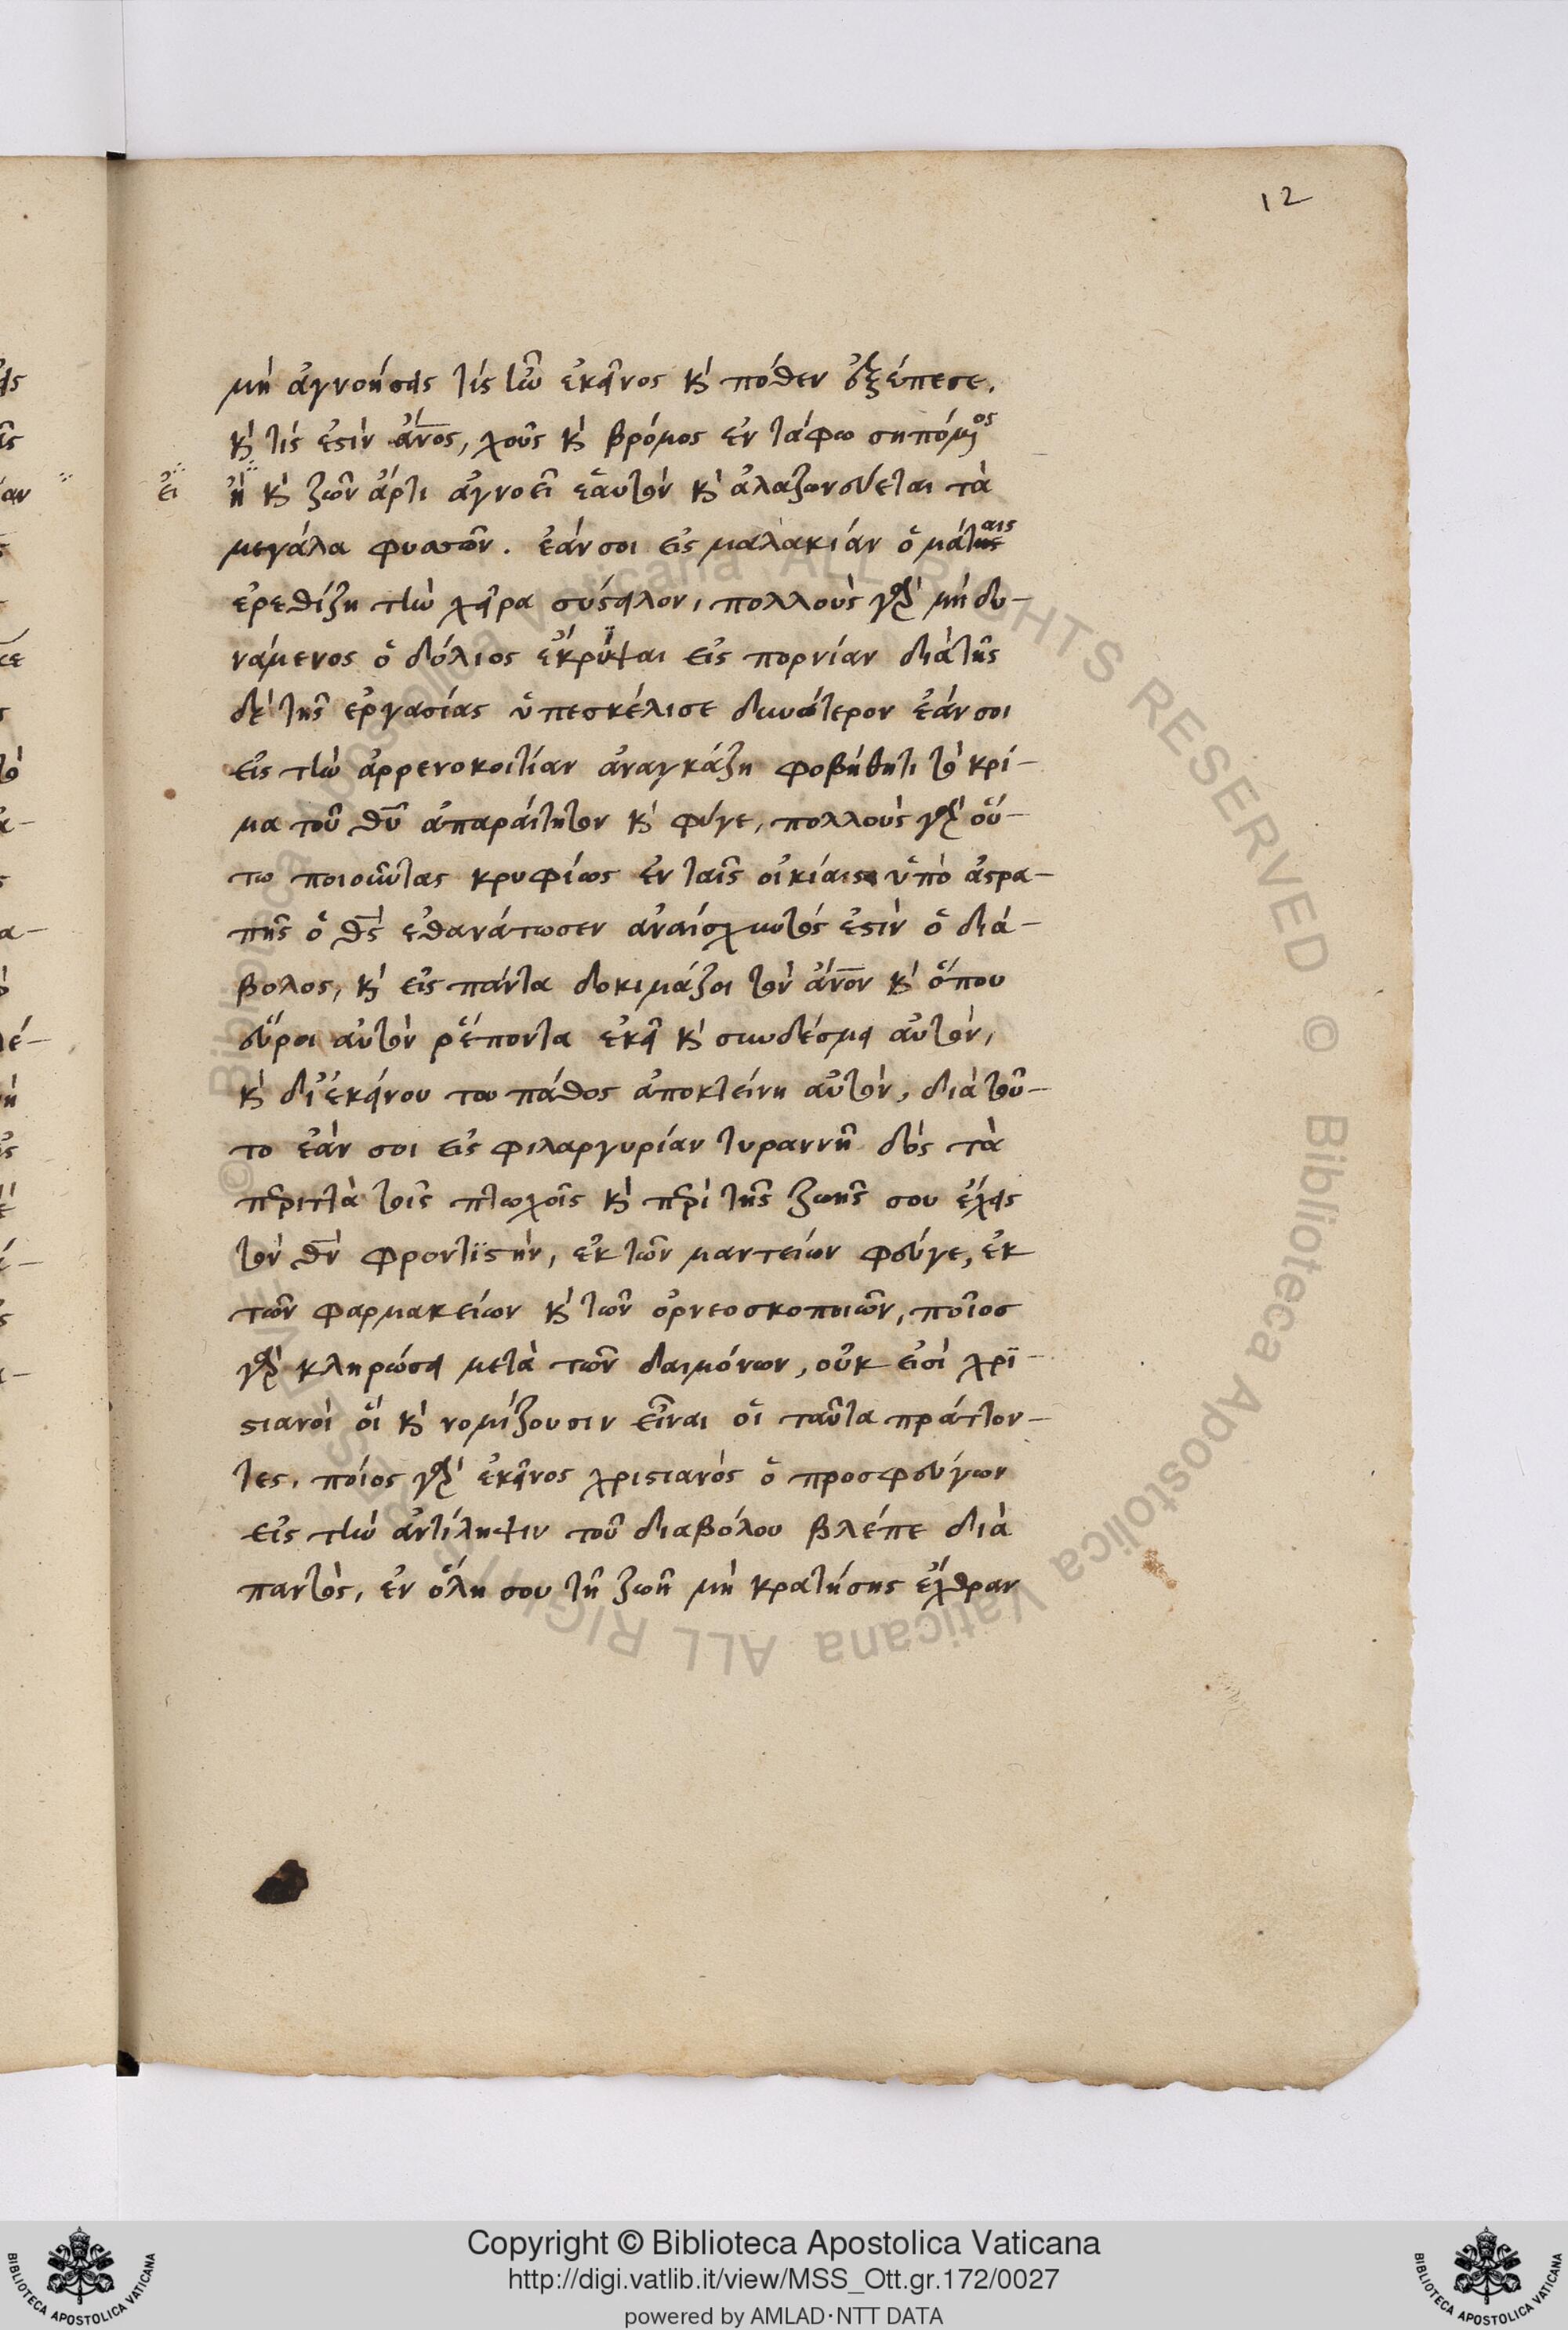 12
μὴ ἀγνοήσεις τίς ἦν ἐκεῖνος κ̀ πόθεν ἐξέπεσε.
κ̀ τίς ἐστὶν ἄν̅ος, χοῦς κ̀ βρόμος ἐν τάφω σηπόμενος
εἰ ἢ κ̀ ζῶν ἄρτι ἀγνοεῖ ἑαυτὸν κ̀ ἀλαζονεύεται τὰ
μεγάλα φυσῶν. ἐάν σοι εἰς μαλακίαν ὁ μάταις
ἐρεθίζη τὴν χεῖρα σύσταλον, πολλοὺς γὰρ μὴ δυ-
νάμενος ὁ δόλιος ἐκρύψαι εἰς πορνίαν διὰ τῆς
δὲ τῆς ἐργασίας ὑπεσκέλισε δεινότερον ἐάν σοι
εἰς τὴν ἀρρενοκοιτίαν ἀναγκάζη φοβήθητι τὸ κρί-
μα τοῦ θ̅υ̅ ἀπαραίτητον κ̀ φύγε, πολλοὺς γὰρ οὕ-
τω ποιοῦντας κρυφίως ἐν ταῖς οἰκίαις ὑπὸ ἀστρα-
πῆς ὁ θ̅ς̅ ἐθανάτωσεν ἀναίσχυντός ἐστὶν ὁ διά-
βολος, κ̀ εἰς πάντα δοκιμάζοι τὸν ἄν̅ον κ̀ ὅπου
εὕροι αὐτὸν ῥέποντα ἐκεῖ κ̀ συνδέσμει αὐτὸν,
κ̀ δι' ἐκείνου του πάθος ἀποκτείνη αὐτὸν, διὰ τοῦ-
το ἐάν σοι εἰς φιλαργυρίαν τυραννῆ δὸς τὰ
περιττὰ τοῖς πτωχοῖς κ̀ περὶ τῆς ζωῆς σου ἔχεις
τὸν θ̅ν̅ φροντϊστὴν, ἐκ τῶν μαντειῶν φεύγε, ἐκ
τῶν φαρμακείων κ̀ τῶν ὀρνεοσκοποιῶν, ποῖος
γὰρ κληρώσει μετὰ τῶν δαιμόνων, οὐκ εἰσὶ χρϊ-
στιανοὶ οἵ κ̀ νομίζουσιν εἶναι οἱ ταῦτα πράττον-
τες. ποίος γὰρ ἐκεῖνος χριστιανός ὁ προσφεύγων
εἰς τὴν ἀντίληψιν τοῦ διαβόλου βλέπε διὰ
παντὸς, ἐν ὅλη σου τῆ ζωῆ μὴ κρατήσης ἔχθραν
Copyright © Biblioteca Apostolica Vaticana
http://digi.vatlib.it/view/MSS_Ott.gr.172/0027
powered by AMLAD·NTT DATA